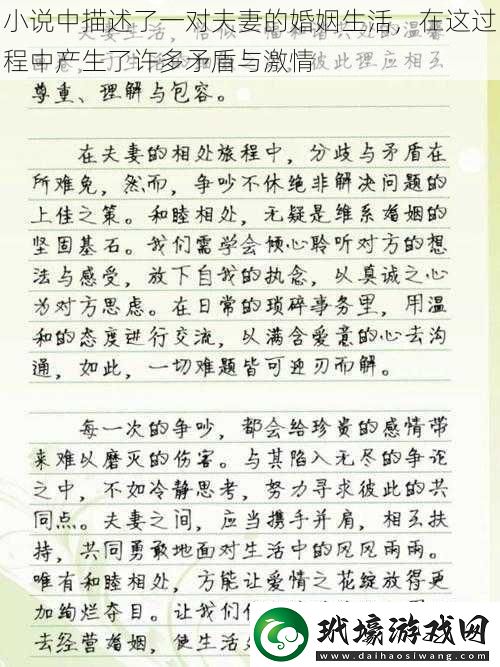 小说中描述了一对夫妻的婚姻生活，在这过
程中产生了许多矛盾与激情
夫妻生活，
彼此理应相互
尊重、理解与包容。
在夫妻的相处旅程中，分歧与矛盾在
所难免，然而，争吵不休绝非解决问题的
上佳之策。和睦相处，无疑是维系婚姻的
坚固基石。我们需学会倾心聆听对方的想
法与感受，放下自我的执念，以真诚之心
为对方思虑。在日常的琐碎事务里，用温
和的态度进行交流，以满含爱意的心去沟
通，如此，一切难题皆可迎刃而解。
每一次的争吵，都会给珍贵的感情带
来难以磨灭的伤害。与其陷入无尽的争论
之中，不如冷静思考，努力寻求彼此的共
同点。夫妻之间，应当携手并肩，相互扶
持，共同勇敢地面对生活中的风风雨雨。
唯有和睦相处，方能让爱情之花绽放得更
加绚烂夺目。让我们
去经营婚姻，使生活
玳壕游戏网
www.daihaosiwang.com